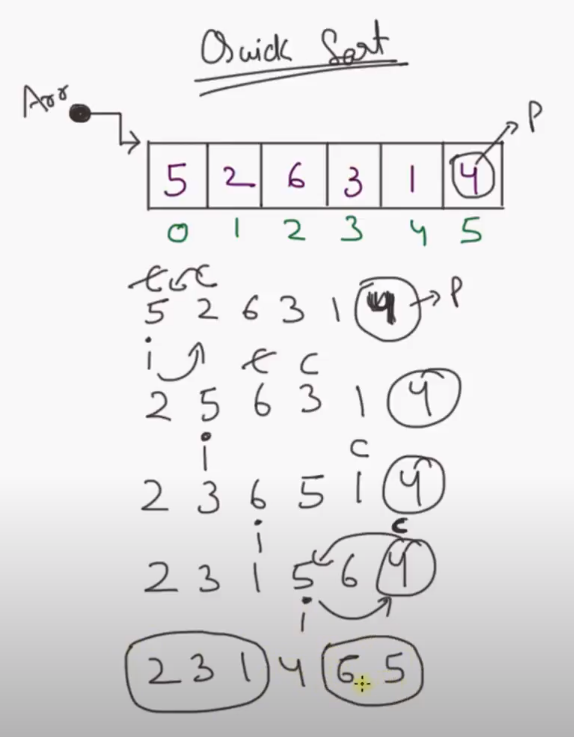 Quick Sort
Arr
P
5 2 6 3 1 4
0 1 2 3 4 5
c c
5 2 6 3 1 4 P
i c c
2 5 6 3 1 4
i c
2 3 6 5 1 4
i c
2 3 1 5 6 4
i
2 3 1 4 6 5